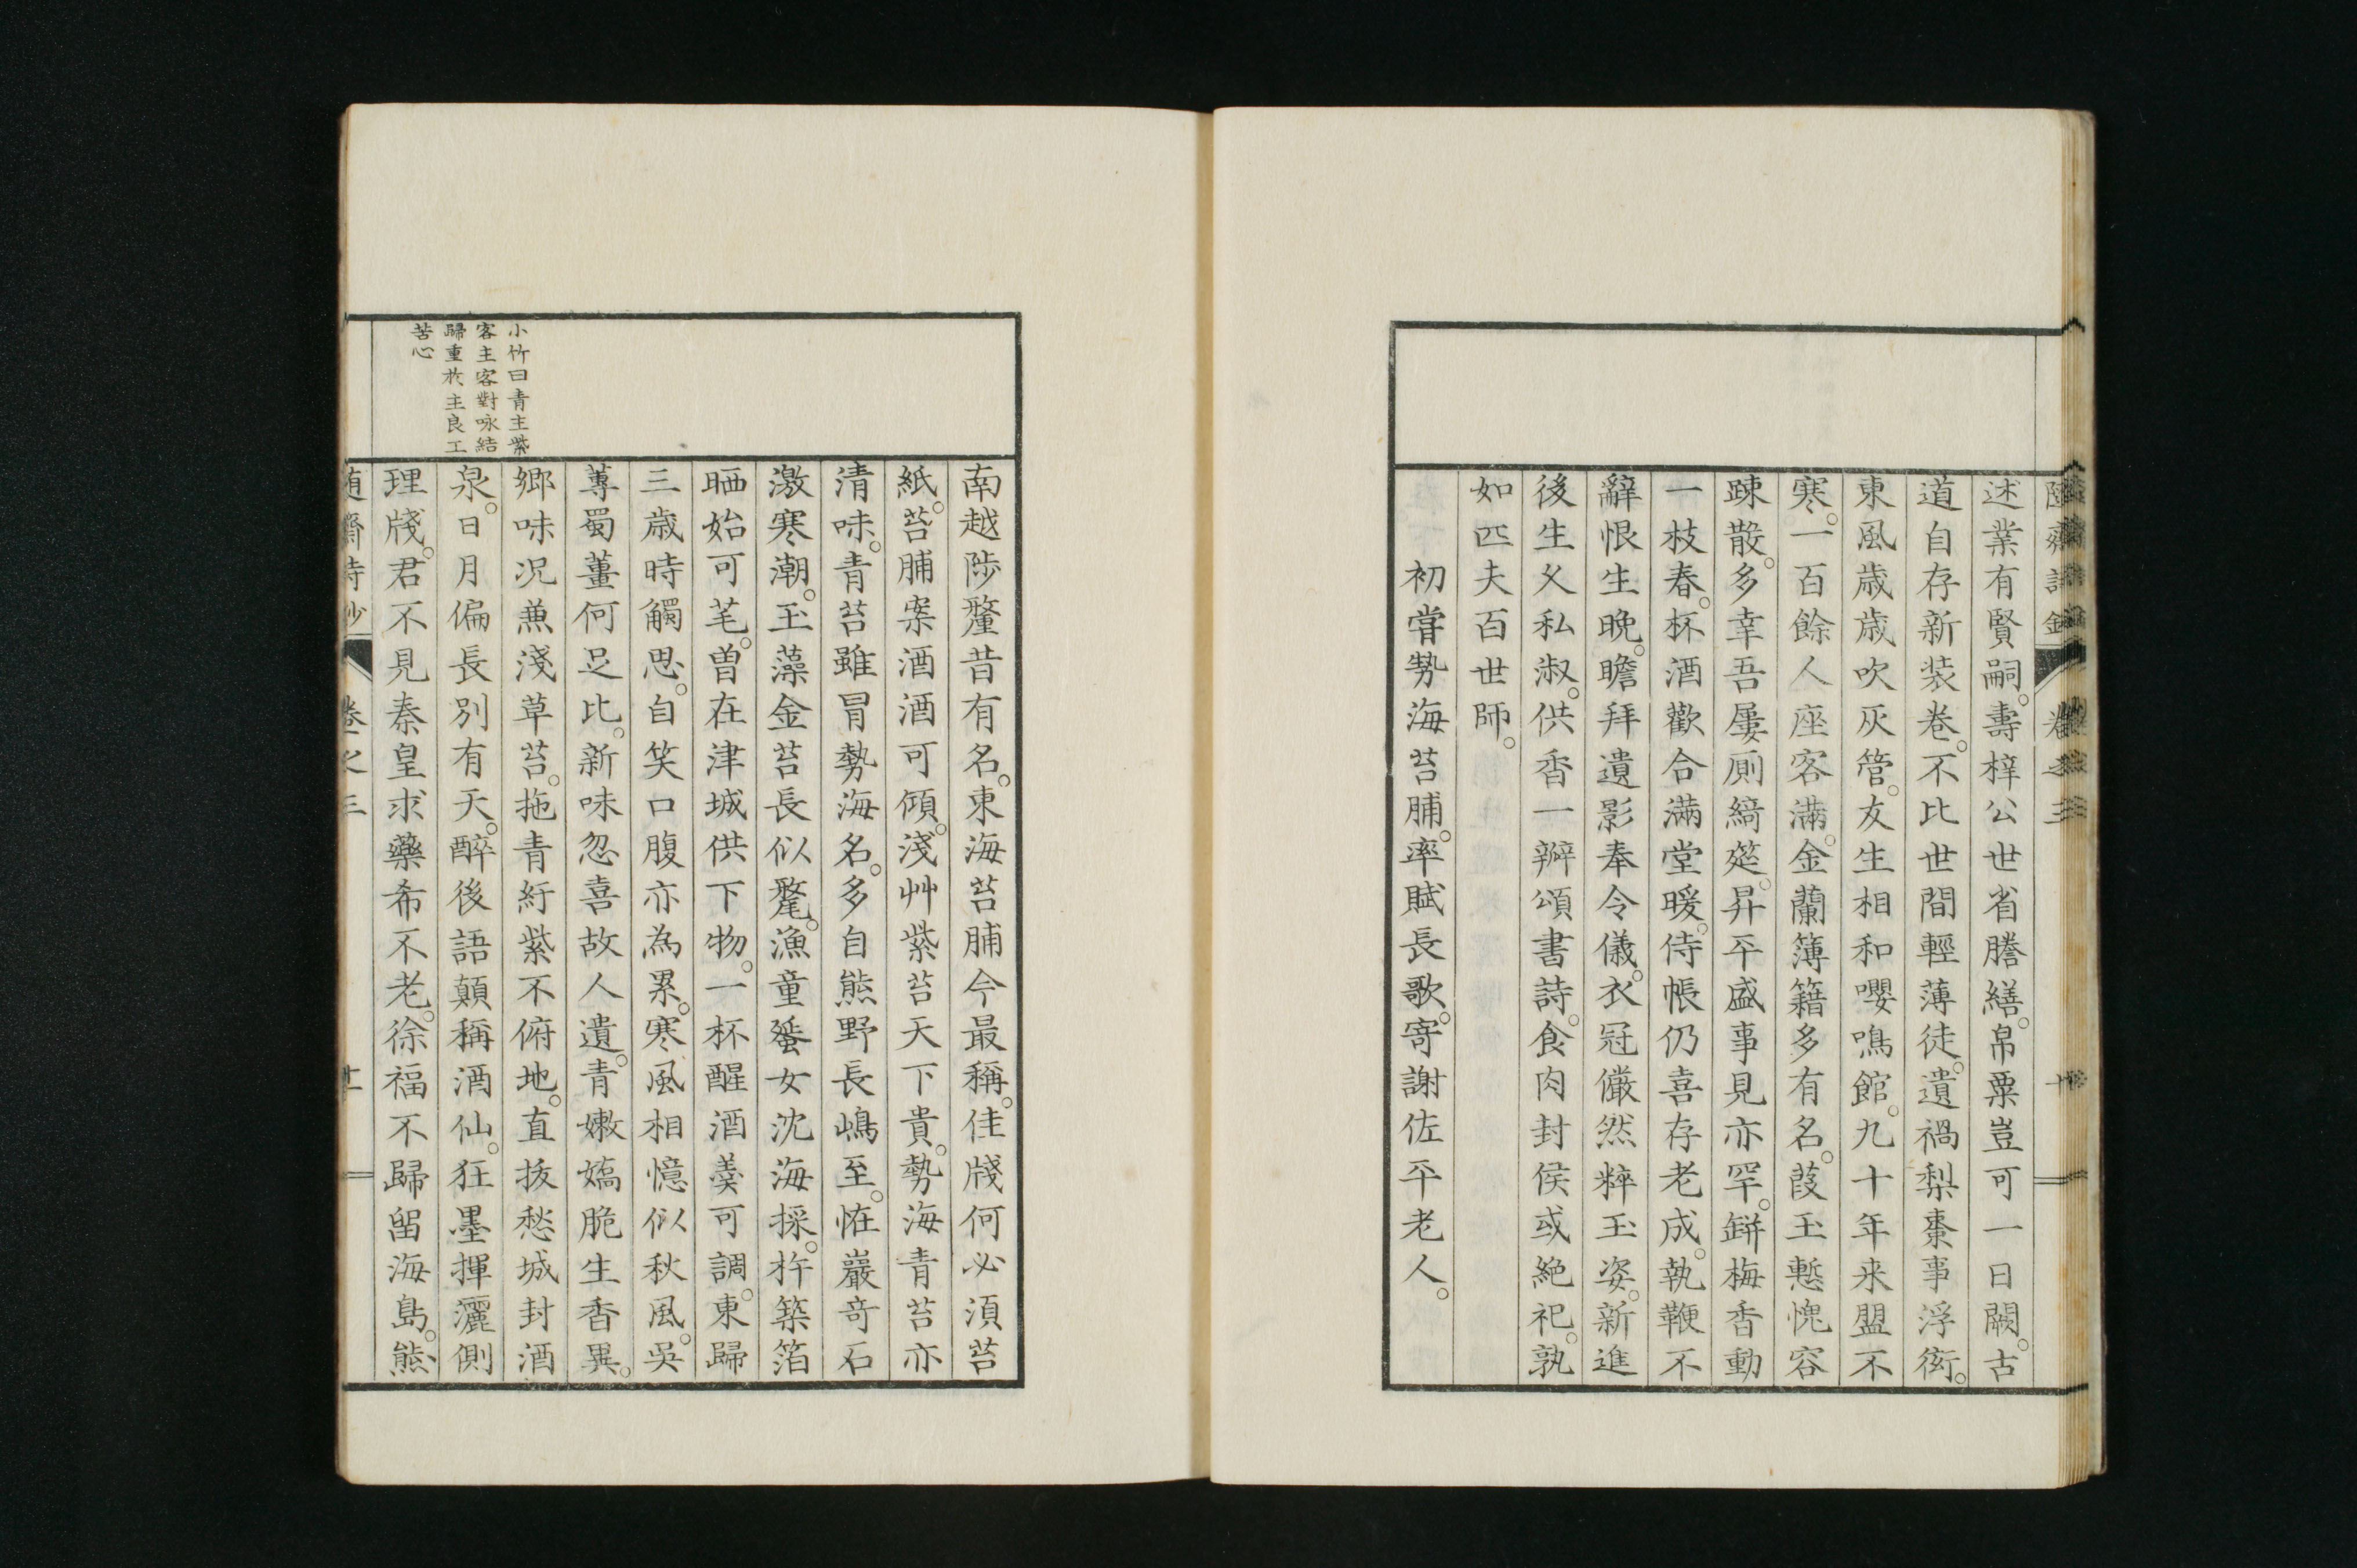 述業有賢嗣。壽梓公世省謄繕。帛粟豈可一日闕。古
道自存新装卷。不比世間輕薄徒。遺禍梨棗事浮衒。
東風歳歳吹灰管。友生相和嚶鳴館。九十年来盟不
寒。一百餘人座客滿。金蘭簿籍多有名。葭玉慙愧容
踈散。多幸吾屢厠綺筵。昇平盛事見亦罕。缾梅香動
一枝春。杯酒歡合滿堂暖。侍帳仍喜存老成。執鞭不
辭恨生晩。瞻拜遺影奉令儀。衣冠儼然粹玉姿。新進
後生乂私淑。供香一瓣頌書詩。食肉封侯或絶祀。孰
如匹夫百世師。
初甞勢海苔脯。率賦長歌。寄謝佐平老人。
卷之三
十
小竹曰青主紫
客主客對咏結
歸重於主良工
苦心
南越陟釐昔有名。東海苔脯今最稱。佳牋何必須苔
紙。苔脯案酒酒可傾。淺艸紫苔天下貴。勢海青苔亦
清味。青苔雖冐勢海名。多自熊野長嶋至。恠巖竒石
激寒潮。玉藻金苔長似髦。漁童蜑女沈海採。杵築箔
晒始可芼。曽在津城供下物。一杯醒酒羮可調。東歸
三歳時觸思。自笑口腹亦為累。寒風相憶似秋風。吳
蓴蜀薑何足比。新味忽喜故人遺。青嫩嬌脆生香異。
鄉味况兼淺草苔。拖青紆紫不俯地。直拔愁城封酒
泉。日月偏長別有天。醉後語顛稱酒仙。狂墨揮灑側
理牋。君不見秦皇求藥希不老。徐福不歸留海島。熊
隨齋詩鈔
卷之三
十一